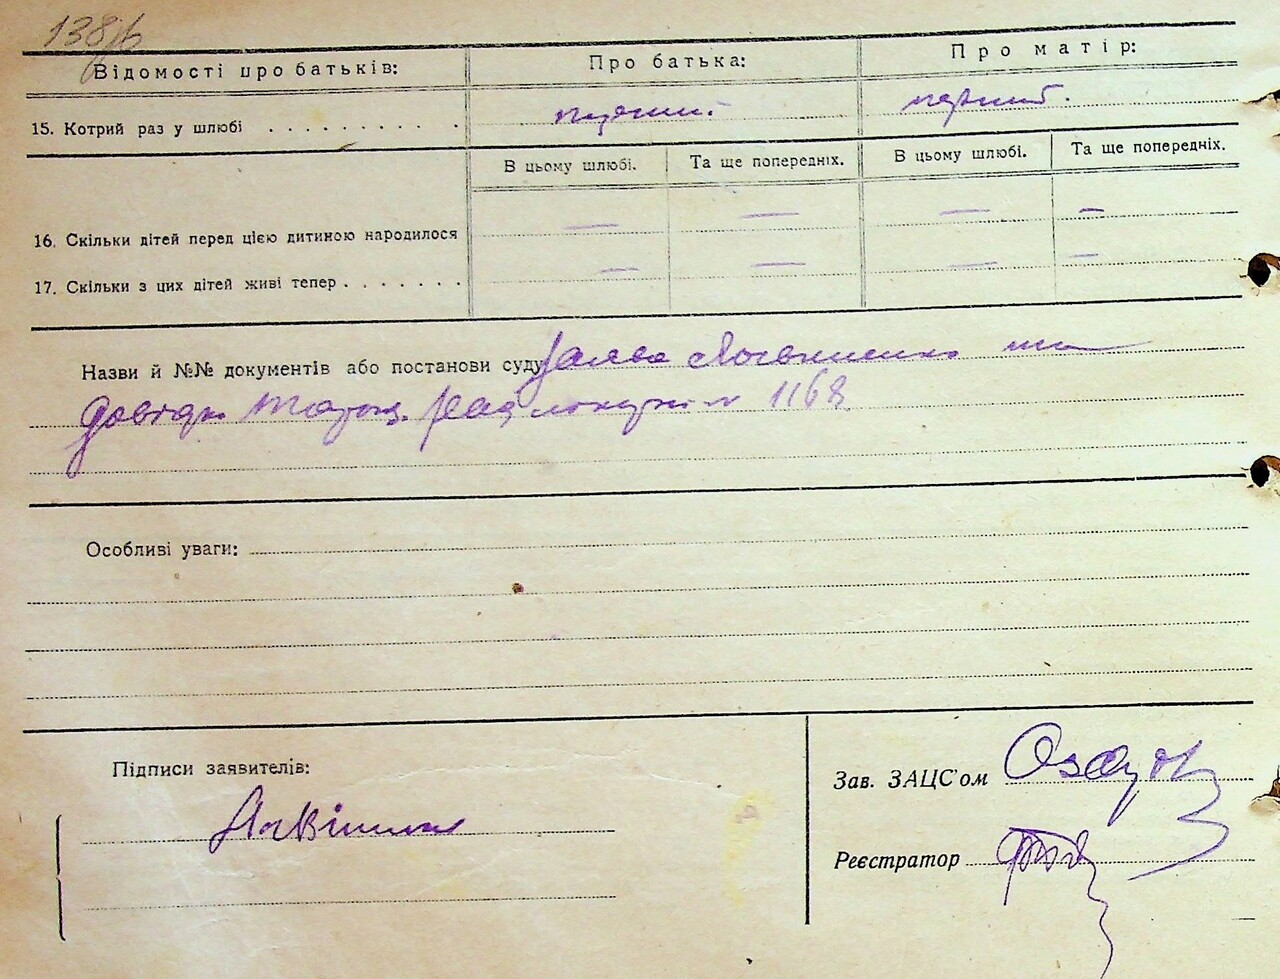 138
Відомості про батьків: Про батька: Про матір:
15. Котрий раз у шлюбі . . . . . . . . . . перший першій
В цьому шлюбі. Та ще попередніх. В цьому шлюбі. Та ще попередніх.
16. Скільки дітей перед цією дитиною народилося — — — —
17. Скільки з цих дітей живі тепер . . . . . . . — — — —
Назви й №№ документів або постанови суду Заява та
довідка 1168
Особливі уваги:
Підписи заявителів:
Зав. ЗАЦС'ом
Реєстратор